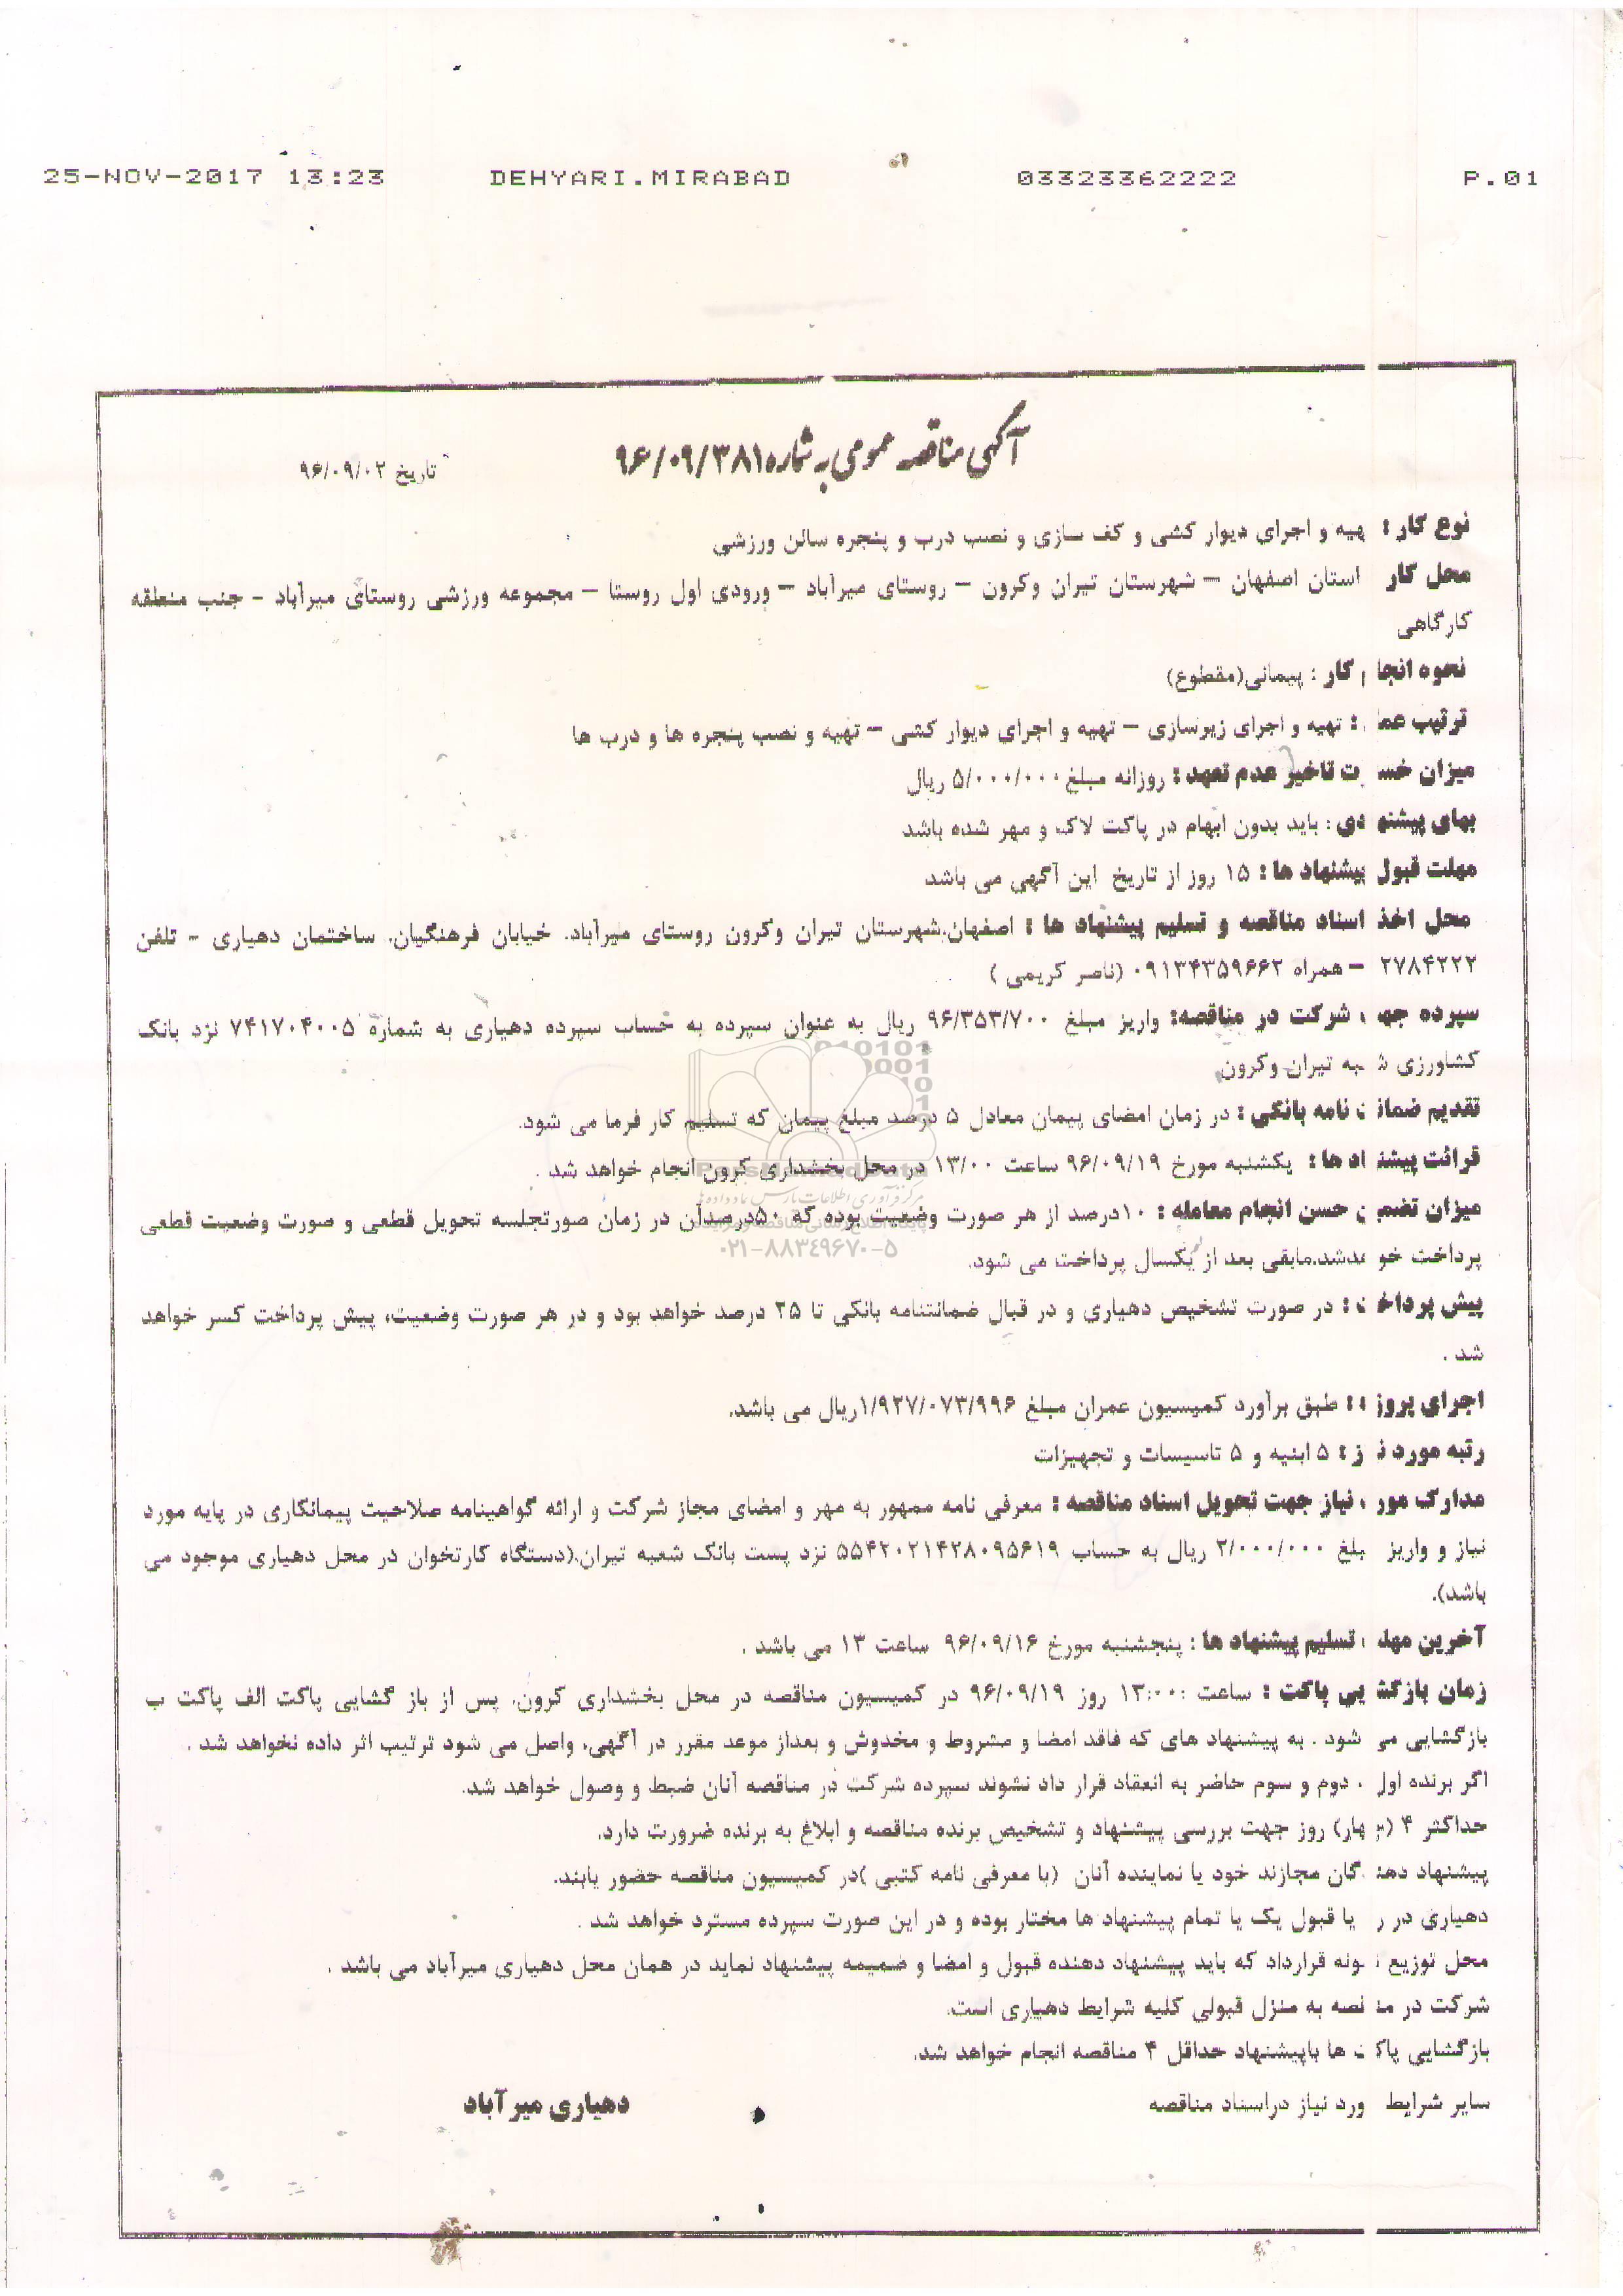 25-NOV-2017 13:23 DEHYARI.MIRABAD 03323362222 P.01
آگهی مناقصه عمومی به شماره ۹۶/۰۹/۳۸۱
تاریخ ۹۶/۰۹/۰۲
نوع کار : تهیه و اجرای دیوار کشی و کف سازی و نصب درب و پنجره سالن ورزشی
محل کار استان اصفهان – شهرستان تیران وکرون – روستای میرآباد – ورودی اول روستا – مجموعه ورزشی روستای میرآباد – جنب منطقه
کارگاهی
نحوه انجام کار : پیمانی(مقطوع)
ترتیب عمل : تهیه و اجرای زیرسازی – تهیه و اجرای دیوار کشی – تهیه و نصب پنجره ها و درب ها
میزان خسارت تاخیر عدم تعهد : روزانه مبلغ ۵/۰۰۰/۰۰۰ ریال
بهای پیشنهادی : باید بدون ابهام در پاکت لاک و مهر شده باشد
مهلت قبول پیشنهاد ها : ۱۵ روز از تاریخ این آگهی می باشد
محل اخذ اسناد مناقصه و تسلیم پیشنهاد ها : اصفهان.شهرستان تیران وکرون روستای میرآباد. خیابان فرهنگیان. ساختمان دهیاری – تلفن
۲۷۸۴۲۲۲ – همراه ۰۹۱۳۴۳۵۹۶۶۲ (ناصر کریمی )
سپرده جهت شرکت در مناقصه: واریز مبلغ ۹۶/۳۵۳/۷۰۰ ریال به عنوان سپرده به حساب سپرده دهیاری به شماره ۷۴۱۷۰۴۰۰۵ نزد بانک
کشاورزی شعبه تیران وکرون
تقدیم ضمانت نامه بانکی : در زمان امضای پیمان معادل ۵ درصد مبلغ پیمان که تسلیم کار فرما می شود.
قرائت پیشنهاد ها : یکشنبه مورخ ۹۶/۰۹/۱۹ ساعت ۱۳/۰۰ در محل بخشداری کرون انجام خواهد شد .
میزان تضمین حسن انجام معامله : ۱۰درصد از هر صورت وضعیت بوده که ۵۰درصدآن در زمان صورتجلسه تحویل قطعی و صورت وضعیت قطعی
پرداخت خواهدشد.مابقی بعد از یکسال پرداخت می شود.
ParsNamadData
مرکز فرآوری اطلاعات پارس نماد داده ها
۰۲۱-۸۸۳۴۹۶۷۰-۵
پیش پرداخت : در صورت تشخیص دهیاری و در قبال ضمانتنامه بانکی تا ۲۵ درصد خواهد بود و در هر صورت وضعیت، پیش پرداخت کسر خواهد
شد .
اجرای پروژه : طبق برآورد کمیسیون عمران مبلغ ۱/۹۲۷/۰۷۳/۹۹۶ریال می باشد.
رتبه مورد نیاز : ۵ ابنیه و ۵ تاسیسات و تجهیزات
مدارک مورد نیاز جهت تحویل اسناد مناقصه : معرفی نامه ممهور به مهر و امضای مجاز شرکت و ارائه گواهینامه صلاحیت پیمانکاری در پایه مورد
نیاز و واریز مبلغ ۲/۰۰۰/۰۰۰ ریال به حساب ۵۵۴۲۰۲۱۴۲۸۰۹۵۶۱۹ نزد پست بانک شعبه تیران.(دستگاه کارتخوان در محل دهیاری موجود می
باشد).
آخرین مهلت تسلیم پیشنهاد ها : پنجشنبه مورخ ۹۶/۰۹/۱۶ ساعت ۱۳ می باشد .
زمان بازگشایی پاکت : ساعت ۱۳:۰۰ روز ۹۶/۰۹/۱۹ در کمیسیون مناقصه در محل بخشداری کرون. پس از باز گشایی پاکت الف پاکت ب
بازگشایی می شود . به پیشنهاد های که فاقد امضا و مشروط و مخدوش و بعداز موعد مقرر در آگهی، واصل می شود ترتیب اثر داده نخواهد شد .
اگر برنده اول ، دوم و سوم حاضر به انعقاد قرار داد نشوند سپرده شرکت در مناقصه آنان ضبط و وصول خواهد شد.
حداکثر ۴ (چهار) روز جهت بررسی پیشنهاد و تشخیص برنده مناقصه و ابلاغ به برنده ضرورت دارد.
پیشنهاد دهندگان مجازند خود یا نماینده آنان (با معرفی نامه کتبی )در کمیسیون مناقصه حضور یابند.
دهیاری در رد یا قبول یک یا تمام پیشنهاد ها مختار بوده و در این صورت سپرده مسترد خواهد شد .
محل توزیع نمونه قرارداد که باید پیشنهاد دهنده قبول و امضا و ضمیمه پیشنهاد نماید در همان محل دهیاری میرآباد می باشد .
شرکت در مناقصه به منزل قبولی کلیه شرایط دهیاری است.
بازگشایی پاکت ها باپیشنهاد حداقل ۴ مناقصه انجام خواهد شد.
سایر شرایط مورد نیاز دراسناد مناقصه
دهیاری میر آباد